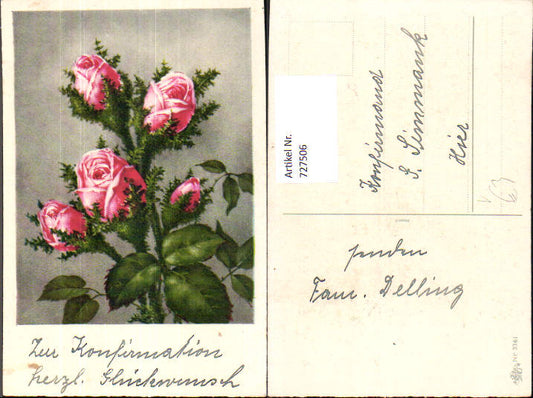 Zur Konfirmation
herzl. Glückwunsch
Artikel Nr.
727506
Konfirmand
P. Simmank
Hier
63
senden
Fam. Delling
Nr. 3161